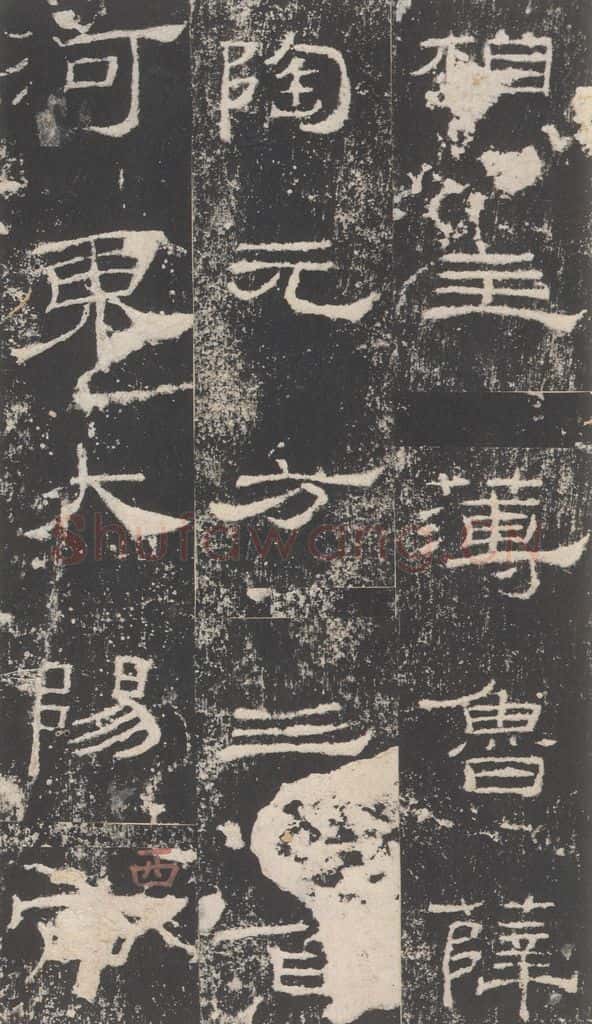 相主薄魯薛
陶元方三百
河東大陽西
Shufawang.CN